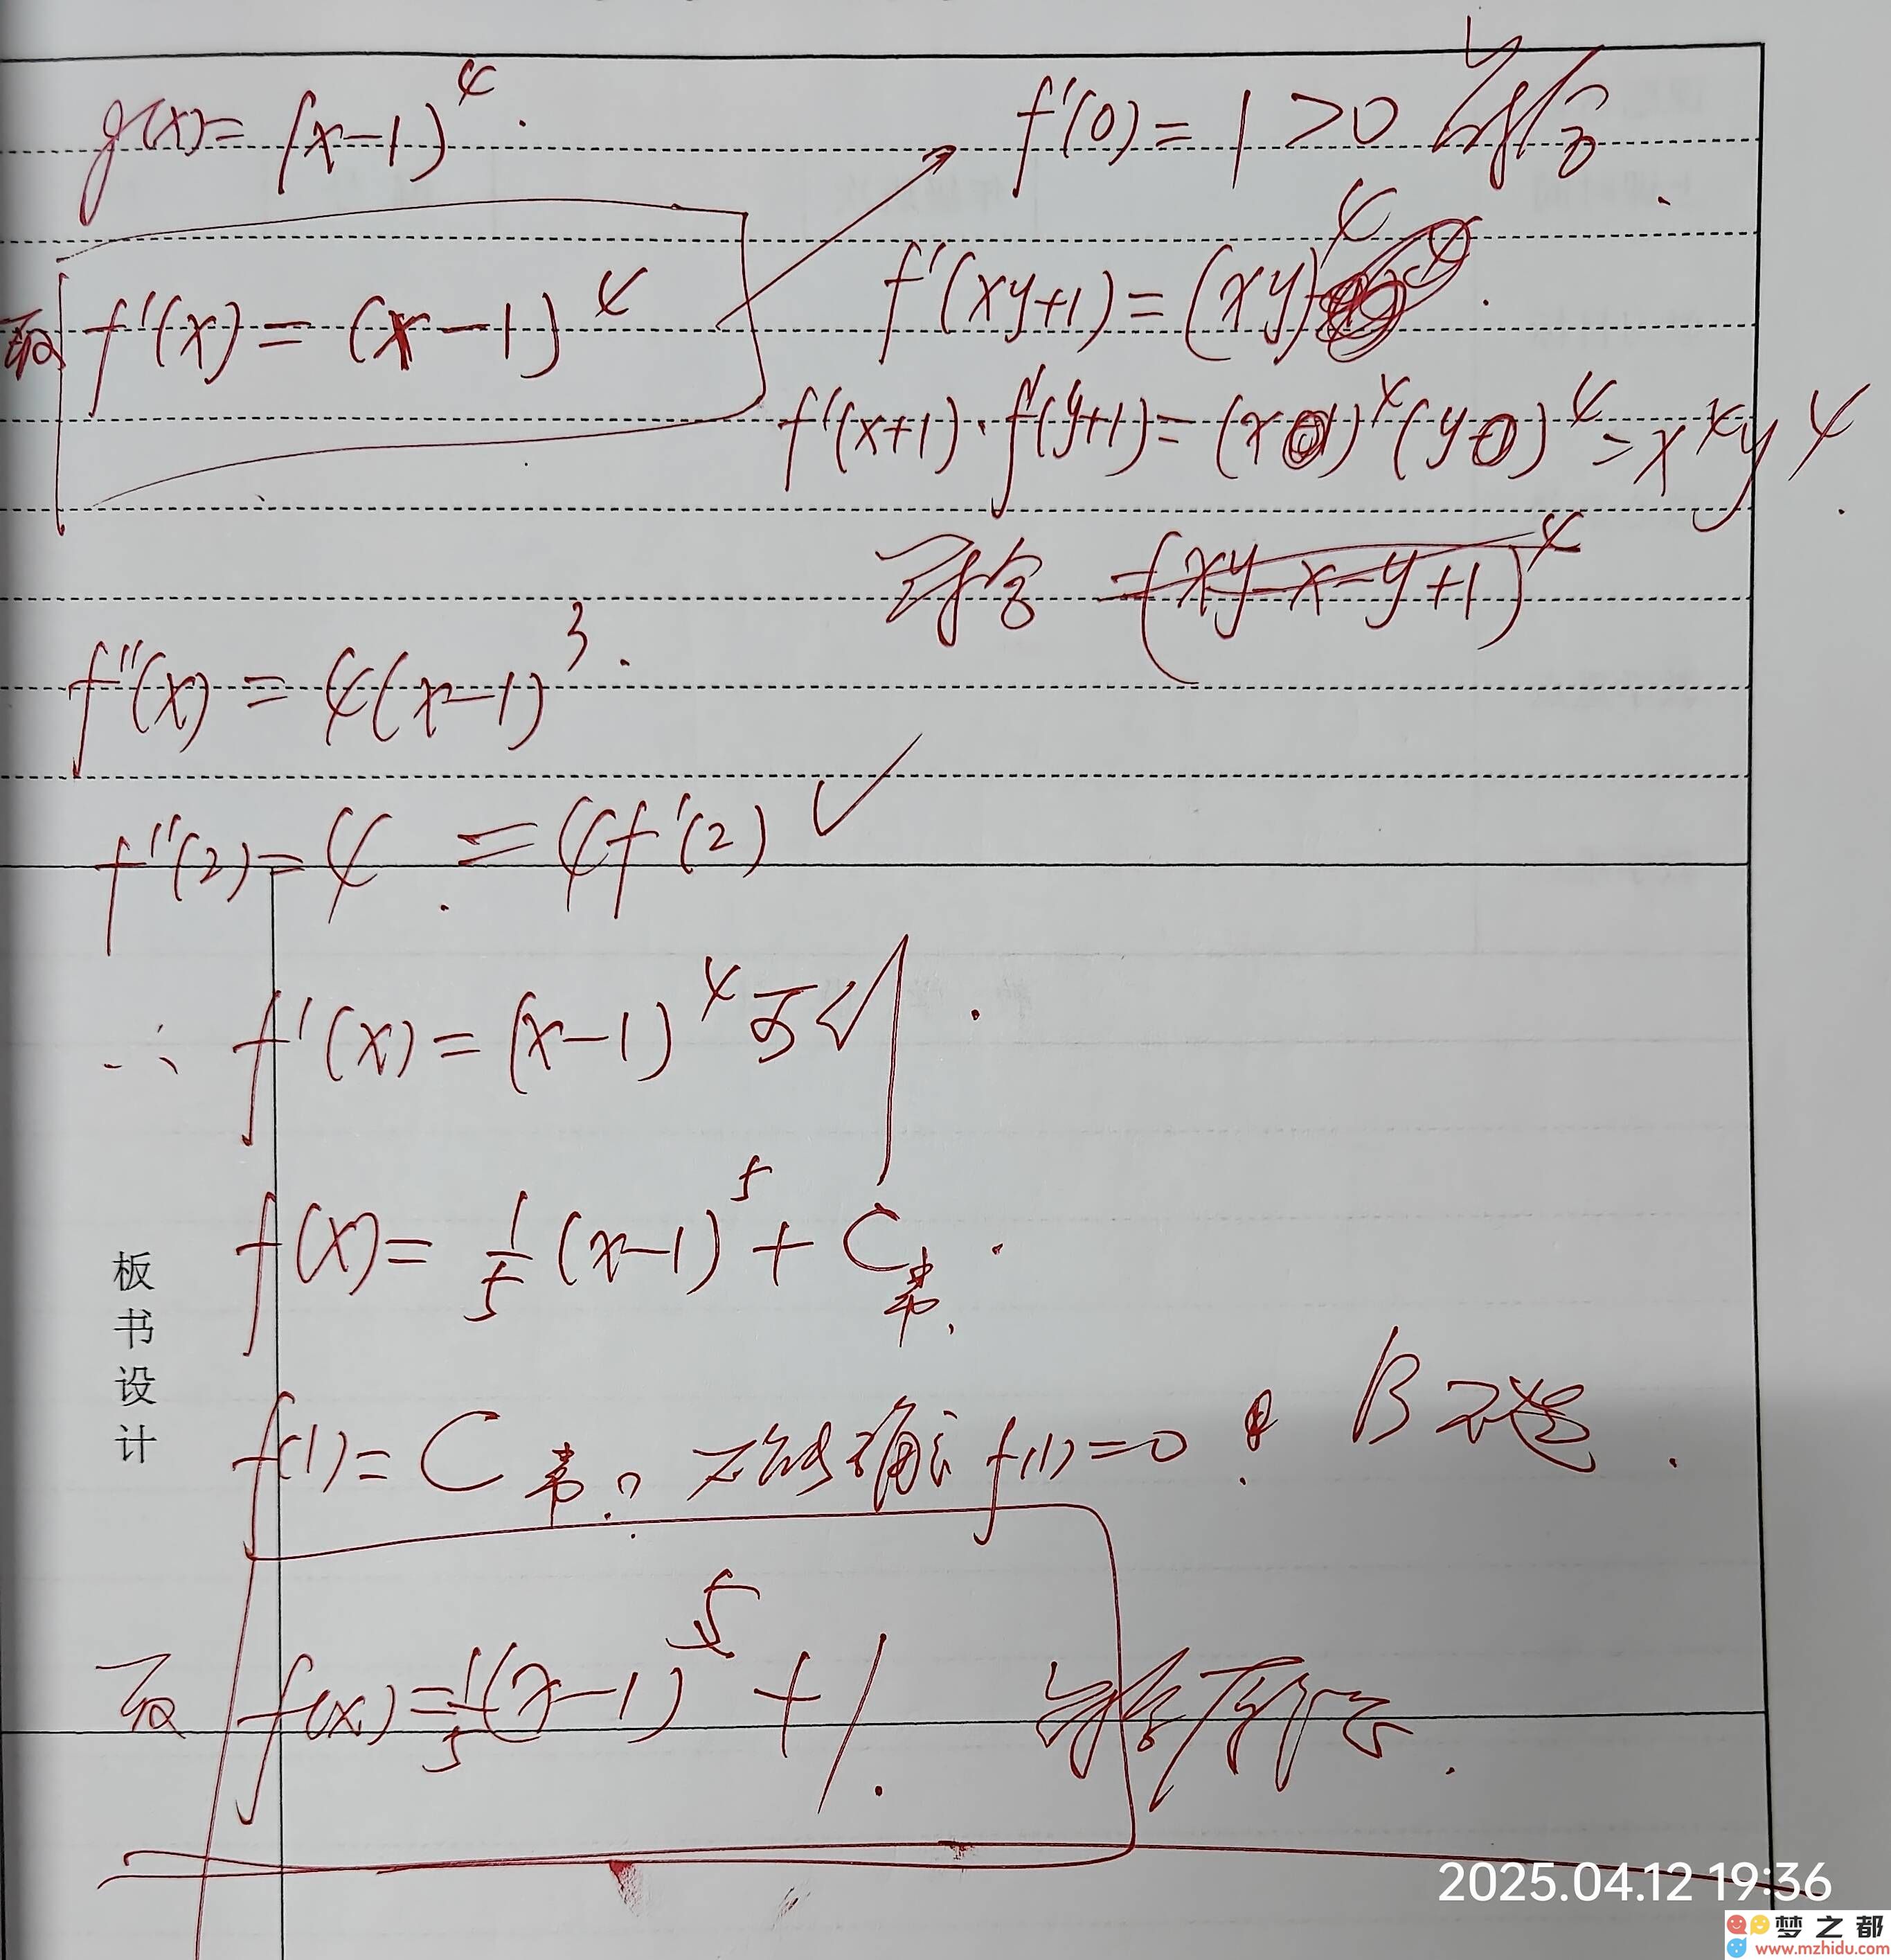 g(x)=(x-1)^4.
f'(0)=1>0 符合
取 f'(x)=(x-1)^4
f'(xy+1)=(xy)^4.
f'(x+1)·f'(y+1)=(x)^4(y)^4=x^4y^4.
符合 =(xy-x-y+1)^4
f''(x)=4(x-1)^3.
f''(2)=4.=4f'(2)✓
∴ f'(x)=(x-1)^4
f(x)=1/5(x-1)^5+C常.
f(1)=C常。不能确定f(1)=0! B不选.
取 f(x)=1/5(x-1)^5+1.
板书设计
2025.04.12 19:36
梦之都
www.mzhidu.com